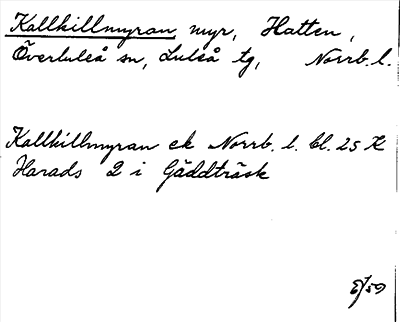 Kallkillmyran, myr, Hatten,
Överluleå sn, Luleå tg, Norrb. l.
Kallkillmyran ek Norrb. l. bl. 25 K
Harads 2 i Gäddträsk
E/59